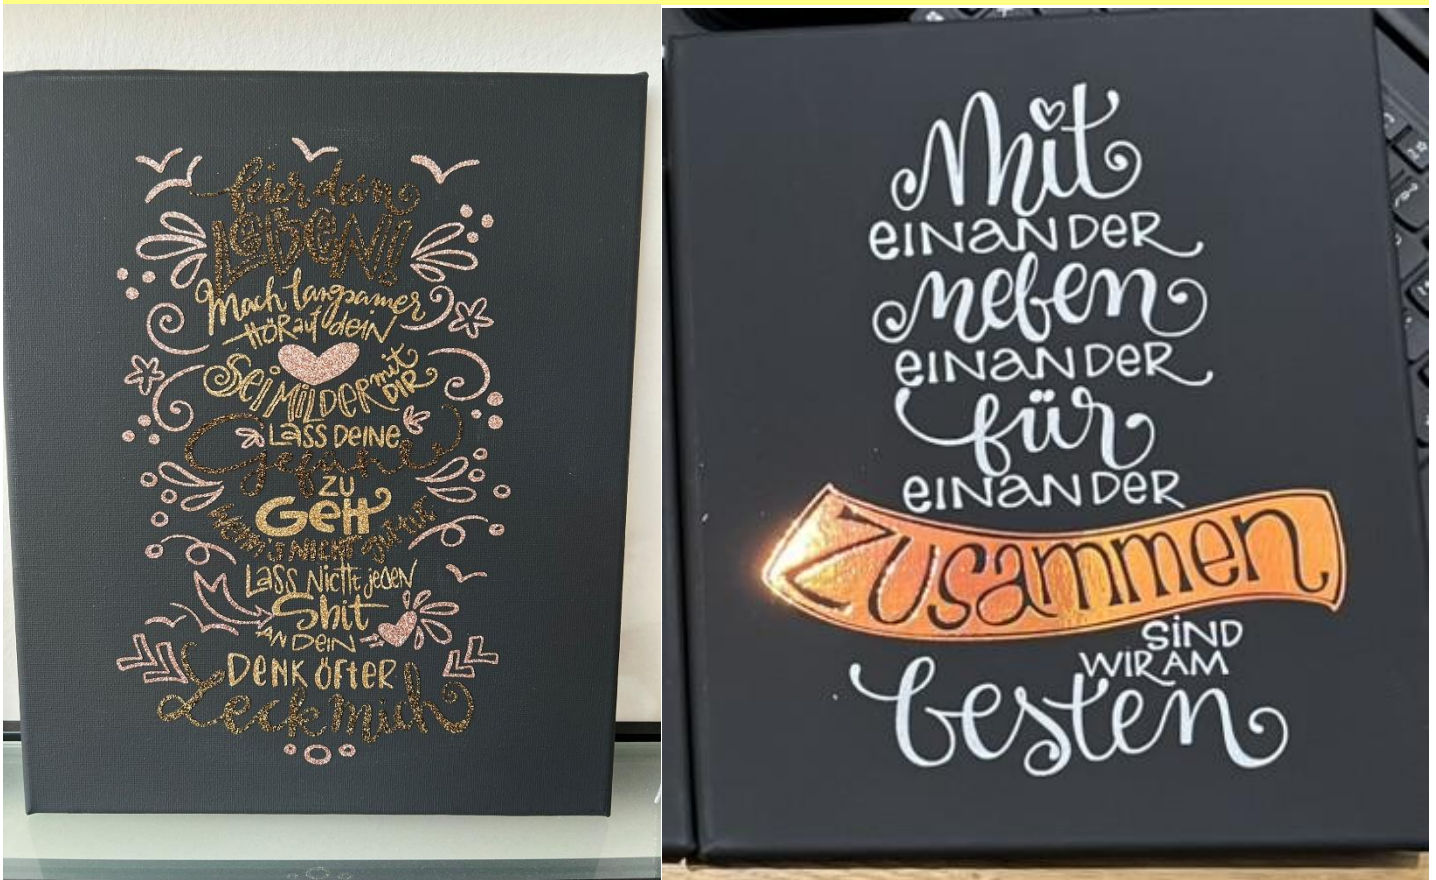 feier dein
LEBEN!!
Mach langsamer
HÖR auf dein
Sei MILDER mit DIR
LASS DEINE
Gefühle
ZU
GEHT
WENN'S NICHT GUT TUT
LASS NICHT jeden
Shit
AN DEIN
DENK ÖFTER
Leck mich
Mit
EINANDER
neben
EINANDER
für
EINANDER
Zusammen
SIND
WIR AM
besten